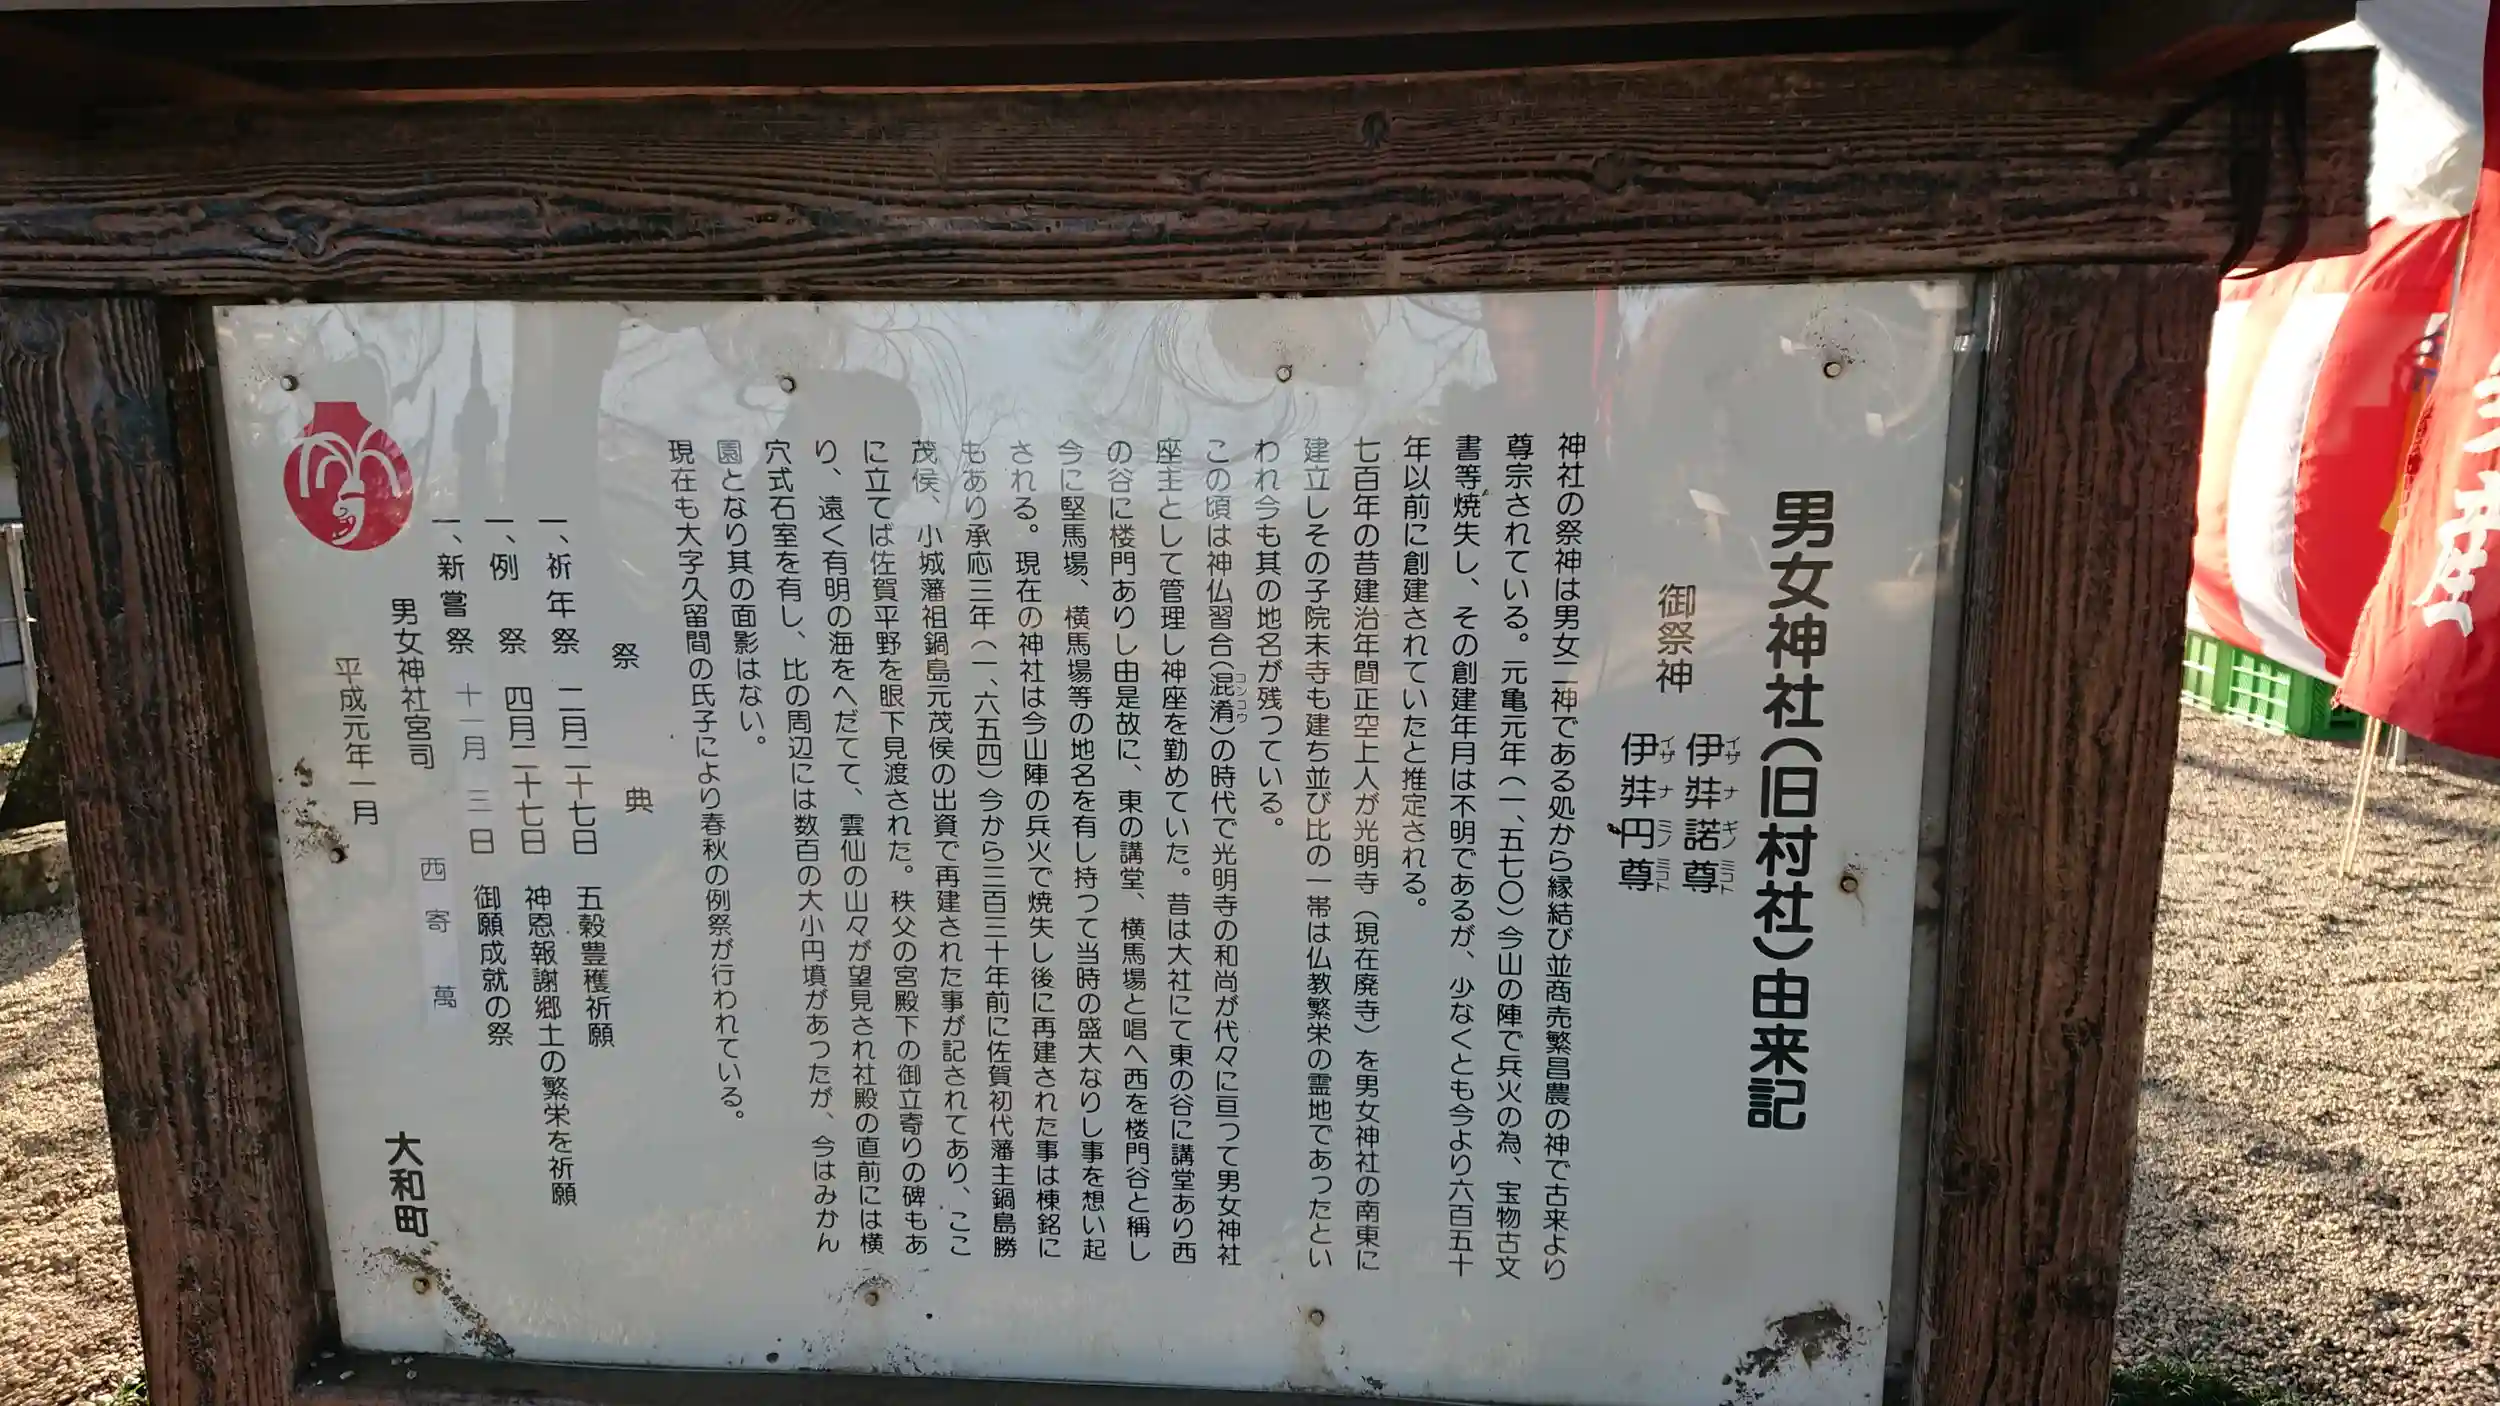 男女神社(旧村社)由来記
御祭神
伊弉諾尊
イザナギノミコト
伊弉円尊
イザナミノミコト
神社の祭神は男女二神である処から縁結び並商売繁昌農の神で古来より
尊宗されている。元亀元年(一、五七〇)今山の陣で兵火の為、宝物古文
書等焼失し、その創建年月は不明であるが、少なくとも今より六百五十
年以前に創建されていたと推定される。
七百年の昔建治年間正空上人が光明寺(現在廃寺)を男女神社の南東に
建立しその子院末寺も建ち並び比の一帯は仏教繁栄の霊地であったとい
われ今も其の地名が残つている。
この頃は神仏習合(混淆)の時代で光明寺の和尚が代々に亘つて男女神社
コンコウ
座主として管理し神座を勤めていた。昔は大社にて東の谷に講堂あり西
の谷に楼門ありし由是故に、東の講堂、横馬場と唱へ西を楼門谷と稱し
今に堅馬場、横馬場等の地名を有し持つて当時の盛大なりし事を想い起
される。現在の神社は今山陣の兵火で焼失し後に再建された事は棟銘に
もあり承応三年(一、六五四)今から三百三十年前に佐賀初代藩主鍋島勝
茂侯、小城藩祖鍋島元茂侯の出資で再建された事が記されてあり、ここ
に立てば佐賀平野を眼下見渡された。秩父の宮殿下の御立寄りの碑もあ
り、遠く有明の海をへだてて、雲仙の山々が望見され社殿の直前には横
穴式石室を有し、比の周辺には数百の大小円墳があったが、今はみかん
園となり其の面影はない。
現在も大字久留間の氏子により春秋の例祭が行われている。
祭典
一、祈年祭 二月二十七日 五穀豊穫祈願
一、例祭 四月二十七日 神恩報謝郷土の繁栄を祈願
一、新嘗祭 十一月三日 御願成就の祭
男女神社宮司 西寄萬
平成元年一月
大和町